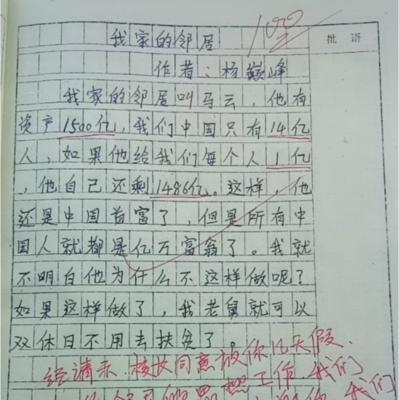 我家的邻居
批语
作者：杨巍峰
我家的邻居叫马云，他有
资产1500亿，我们中国只有14亿
人，如果他给我们每个人1亿
，他自己还剩1486亿。这样，他
还是中国首富了，但是所有中
国人就都是亿万富翁了。我就
不明白他为什么不这样做呢？
如果这样做了，我老舅就可以
双休日不用去扶贫了。
经请示校长同意放你几天假.
思想工作 我们